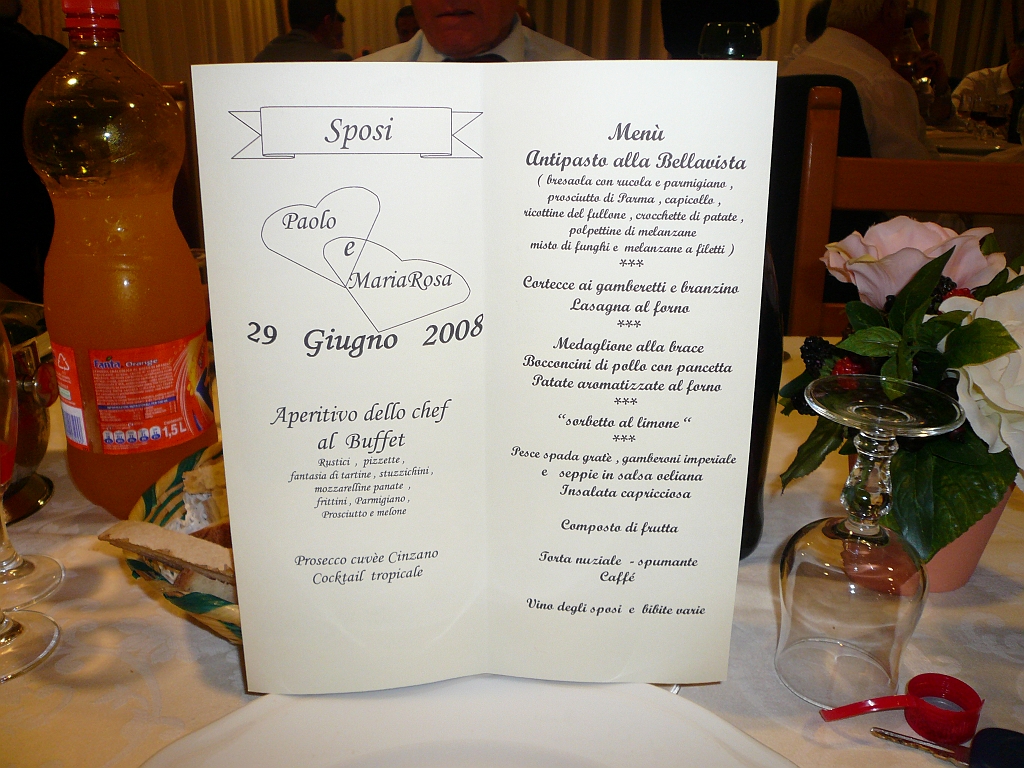 Sposi
Paolo
e
MariaRosa
29 Giugno 2008
Aperitivo dello chef
al Buffet
Rustici , pizzette ,
fantasia di tartine , stuzzichini ,
mozzarelline panate ,
frittini , Parmigiano ,
Prosciutto e melone
Prosecco cuvèe Cinzano
Cocktail tropicale
Menù
Antipasto alla Bellavista
( bresaola con rucola e parmigiano ,
prosciutto di Parma , capicollo ,
ricottine del fullone , crocchette di patate ,
polpettine di melanzane
misto di funghi e melanzane a filetti )
***
Cortecce ai gamberetti e branzino
Lasagna al forno
***
Medaglione alla brace
Bocconcini di pollo con pancetta
Patate aromatizzate al forno
***
“sorbetto al limone “
***
Pesce spada gratè , gamberoni imperiale
e seppie in salsa veliana
Insalata capricciosa
Composto di frutta
Torta nuziale - spumante
Caffé
Vino degli sposi e bibite varie
Fanta Orange
1,5L